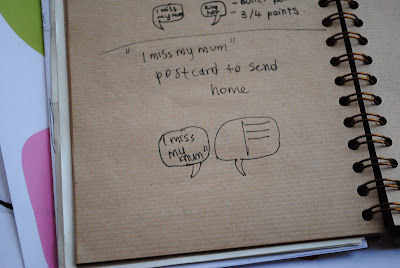 I miss
my mum
- 3/4 points.
"I miss my mum"
postcard to send
home
I miss
my
mum"